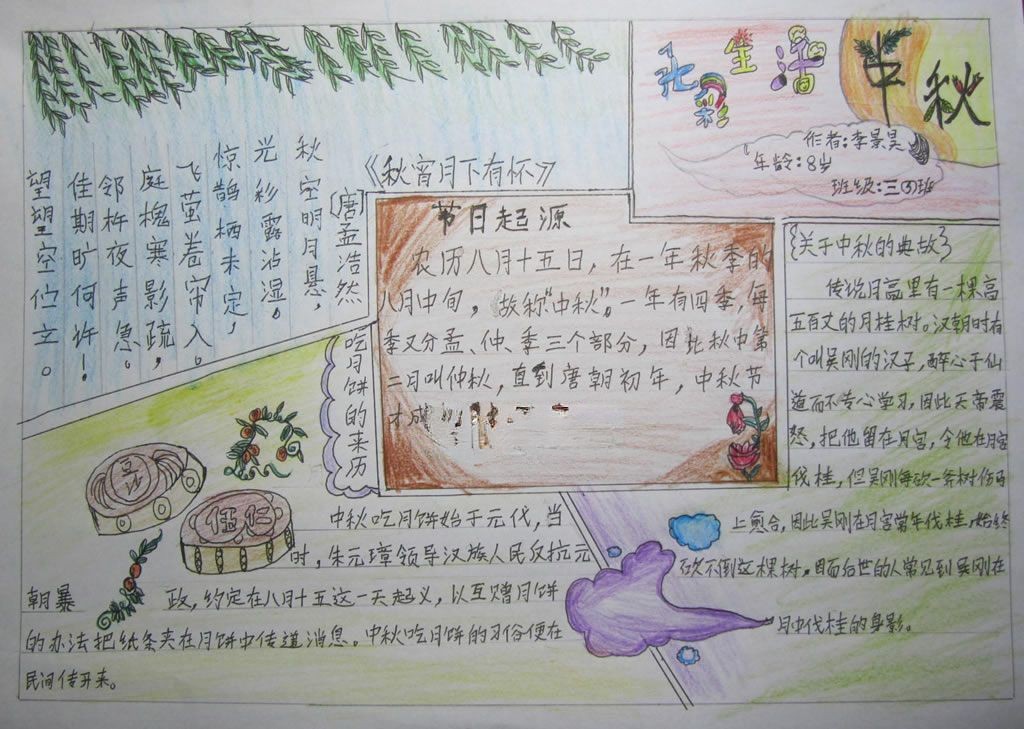 七彩生活
中秋
作者:李景昊
年龄:8岁
班级:三③班
《秋宵月下有怀》
[唐]孟浩然
秋空明月悬,
光彩露沾湿。
惊鹊栖未定,
飞萤卷帘入。
庭槐寒影疏,
邻杵夜声急。
佳期旷何许!
望望空伫立。
节日起源
农历八月十五日,在一年秋季的
八月中旬,故称“中秋”。一年有四季,每
季又分孟、仲、季三个部分,因此秋中第
二月叫仲秋,直到唐朝初年,中秋节
才成
{关于中秋的典故}
传说月亮里有一棵高
五百丈的月桂树。汉朝时有
个叫吴刚的汉子,醉心于仙
道而不专心学习,因此天帝震
怒,把他留在月宫,令他在月宫
伐桂,但吴刚每砍一斧树伤马
上愈合,因此吴刚在月宫常年伐桂,始终
砍不倒这棵树。因而后世的人常见到吴刚在
月中伐桂的身影。
吃月饼的来历
豆沙
伍仁
中秋吃月饼始于元代,当
时,朱元璋领导汉族人民反抗元
朝暴政,约定在八月十五这一天起义,以互赠月饼
的办法把纸条夹在月饼中传道消息。中秋吃月饼的习俗便在
民间传开来。